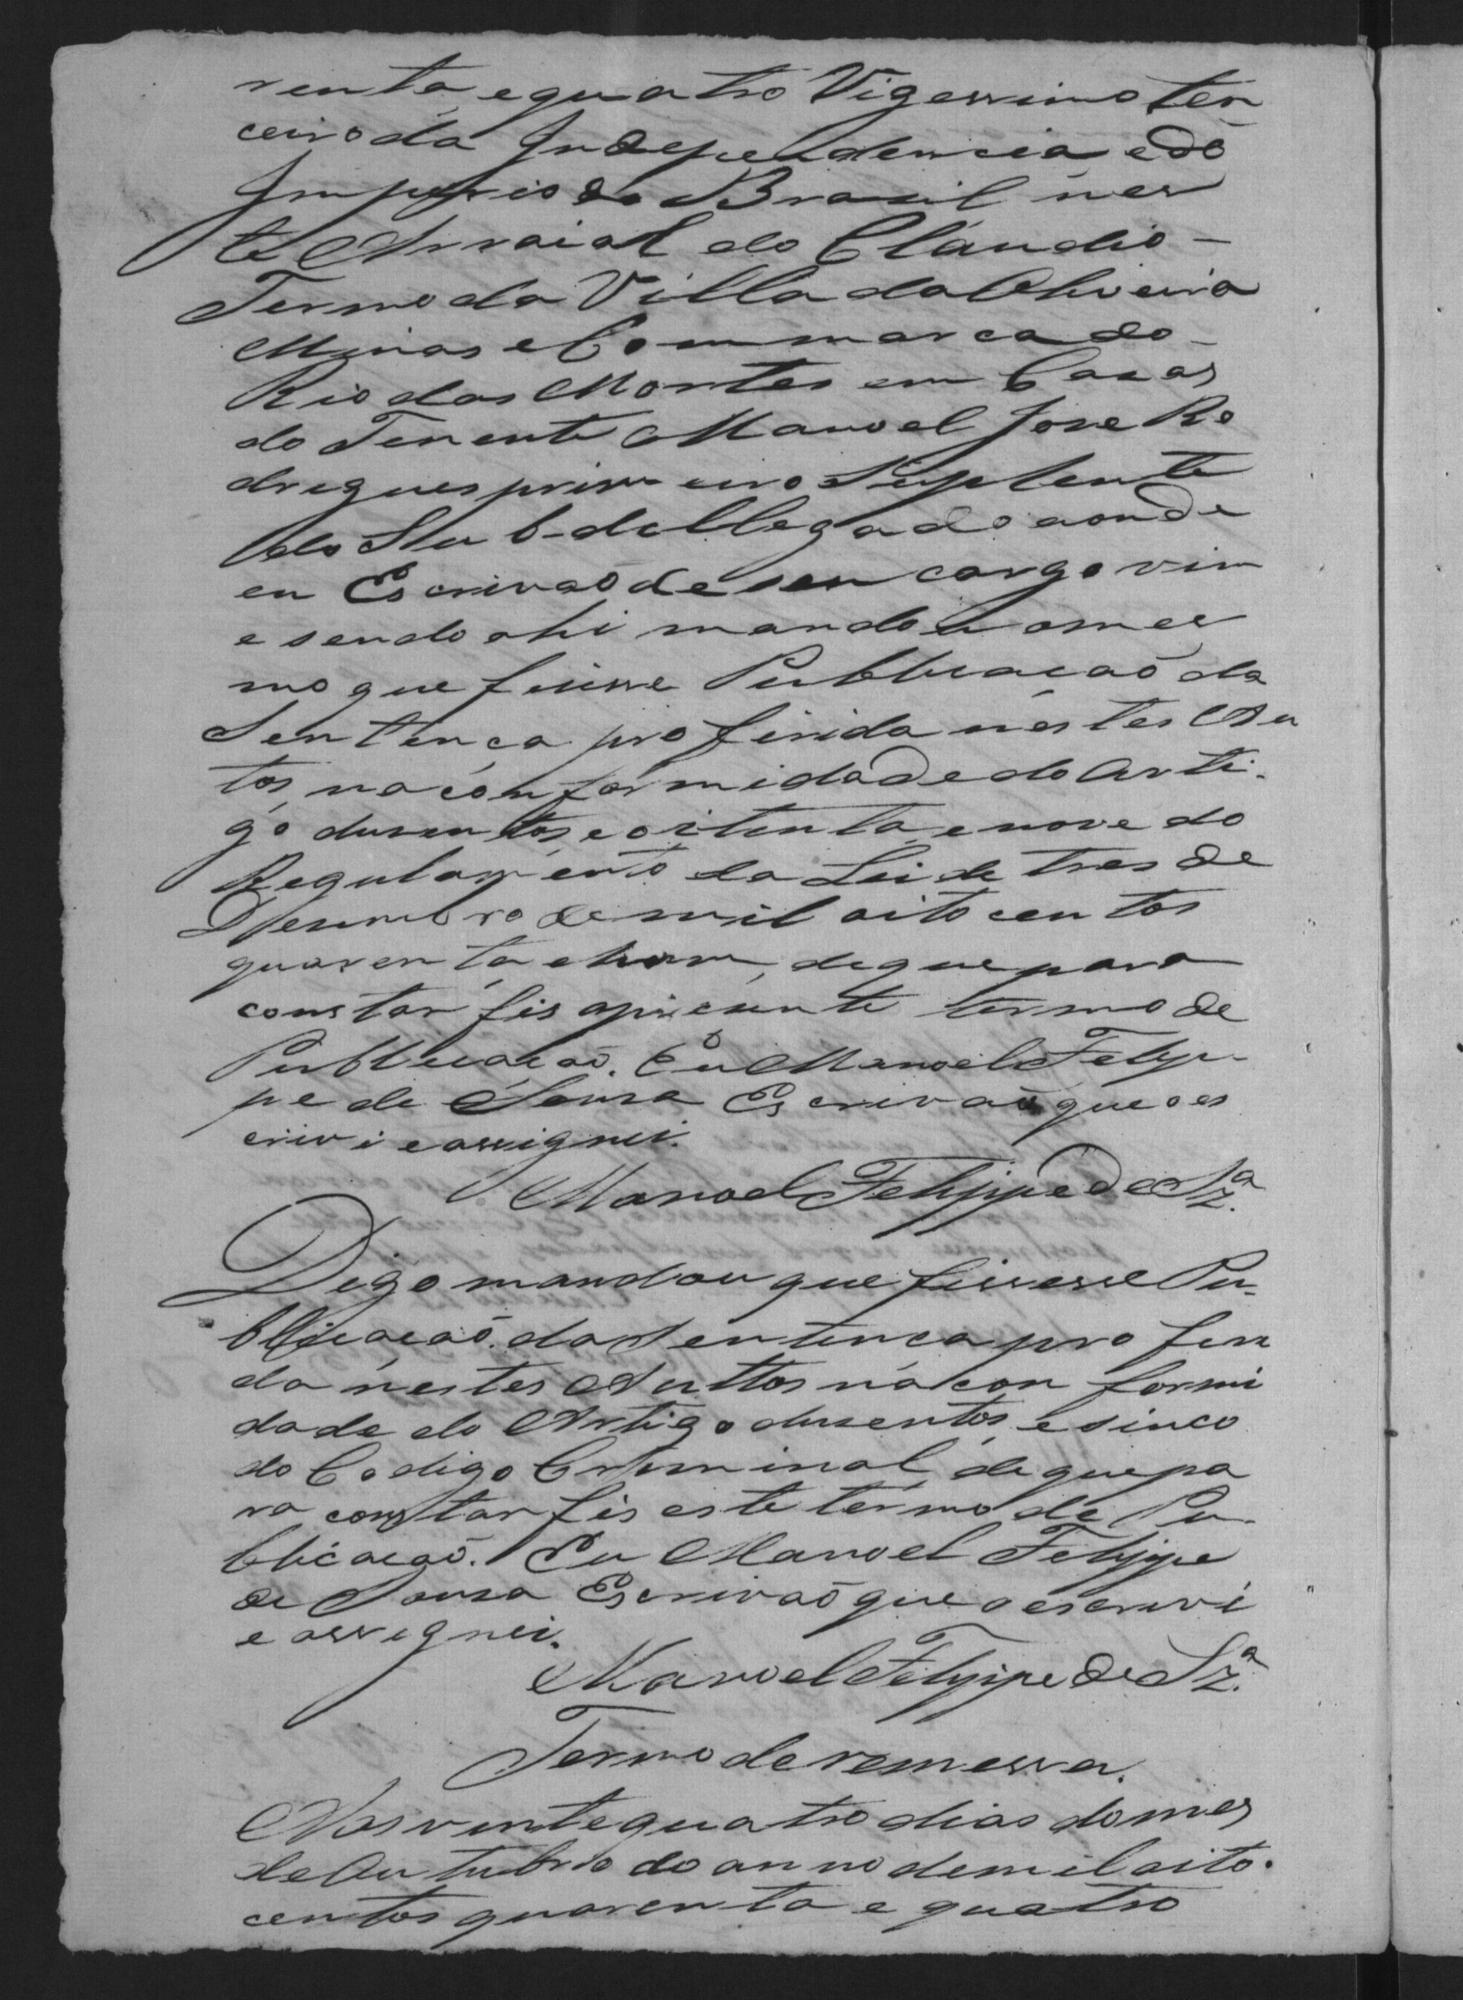 renta, equatro Vigessimo ter
ceiro da Independencia edo
Imperio do Brasil nes
te Arraial do Claudio -
Termo da Villa da Oliveira
Minas e Commarca do -
Rio das Mortes em Casas
do Tenente Manoel Jose Ro
drigues primeiro Suplente
do Sub-dellegado aonde
eu Escrivaõ de seu cargo vim
e sendo ahi mandou omes
mo que fisesse Publicacaõ da
Sentença proferida nestes Au
tos, na conformidade do Arti-
go dusentos, e oitenta, e nove do
Regulamento da Lei de tres de
Desembro de mil oito centos
quarenta, ehum, de que para
constar fis apresente termo de
Publicacaõ. Eu Manoel Felip-
pe de Sousa Escrivaõ que o es
crivi e assignei.
Manoel Felippe de Sz.ª
Digo mandou que fisesse Pu-
blicacaõ da Sentença proferi
da nestes Auttos na conformi
dade do Artigo dusentos, e sinco
do Codigo Criminal, de que pa
ra constar fis este termo de Pu-
blicacaõ. Eu Manoel Felippe
de Sousa Escrivaõ que o escrivi
e assignei.
Manoel Felippe de Sz.ª
Termo de remessa.
Aos vinte quatro dias do mes
de Outubro do anno de mil oito.
centos quarenta e quatro